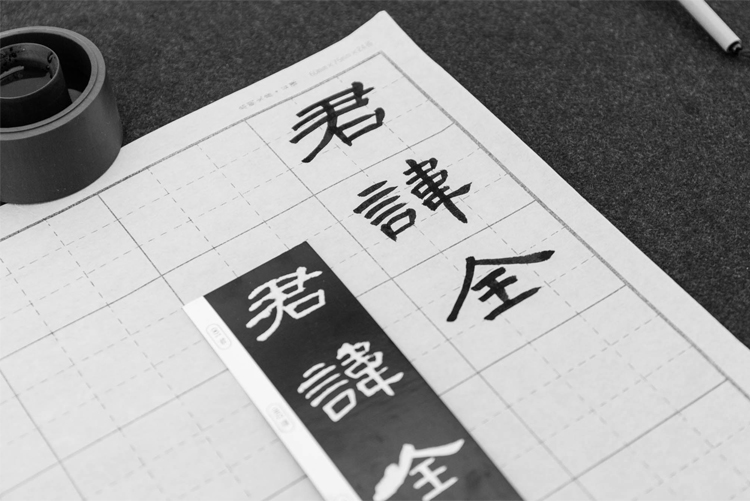 君
諱
全
君
諱
全